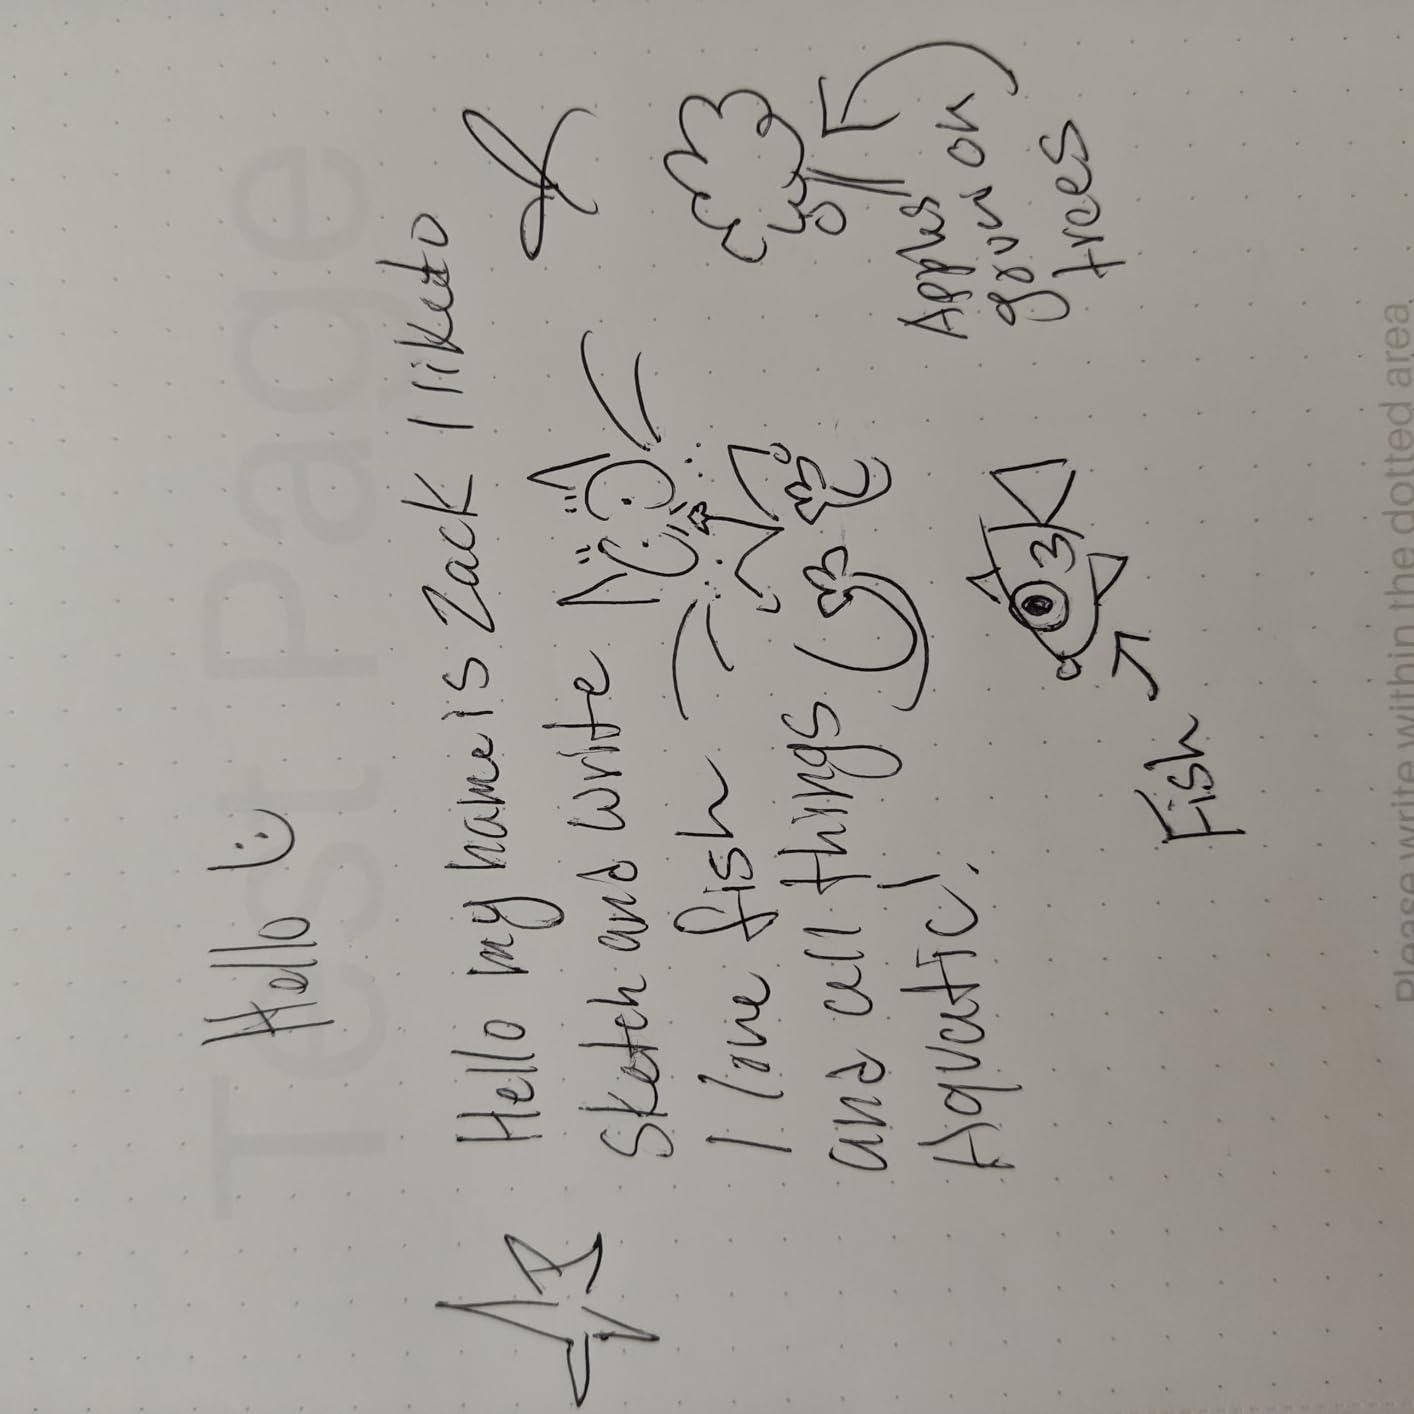 Test Page
Hello
Hello my name is Zack I like to
sketch and write
I love fish
and all things
Aquatic!
Apples
grow on
trees
Fish
Please write within the dotted area